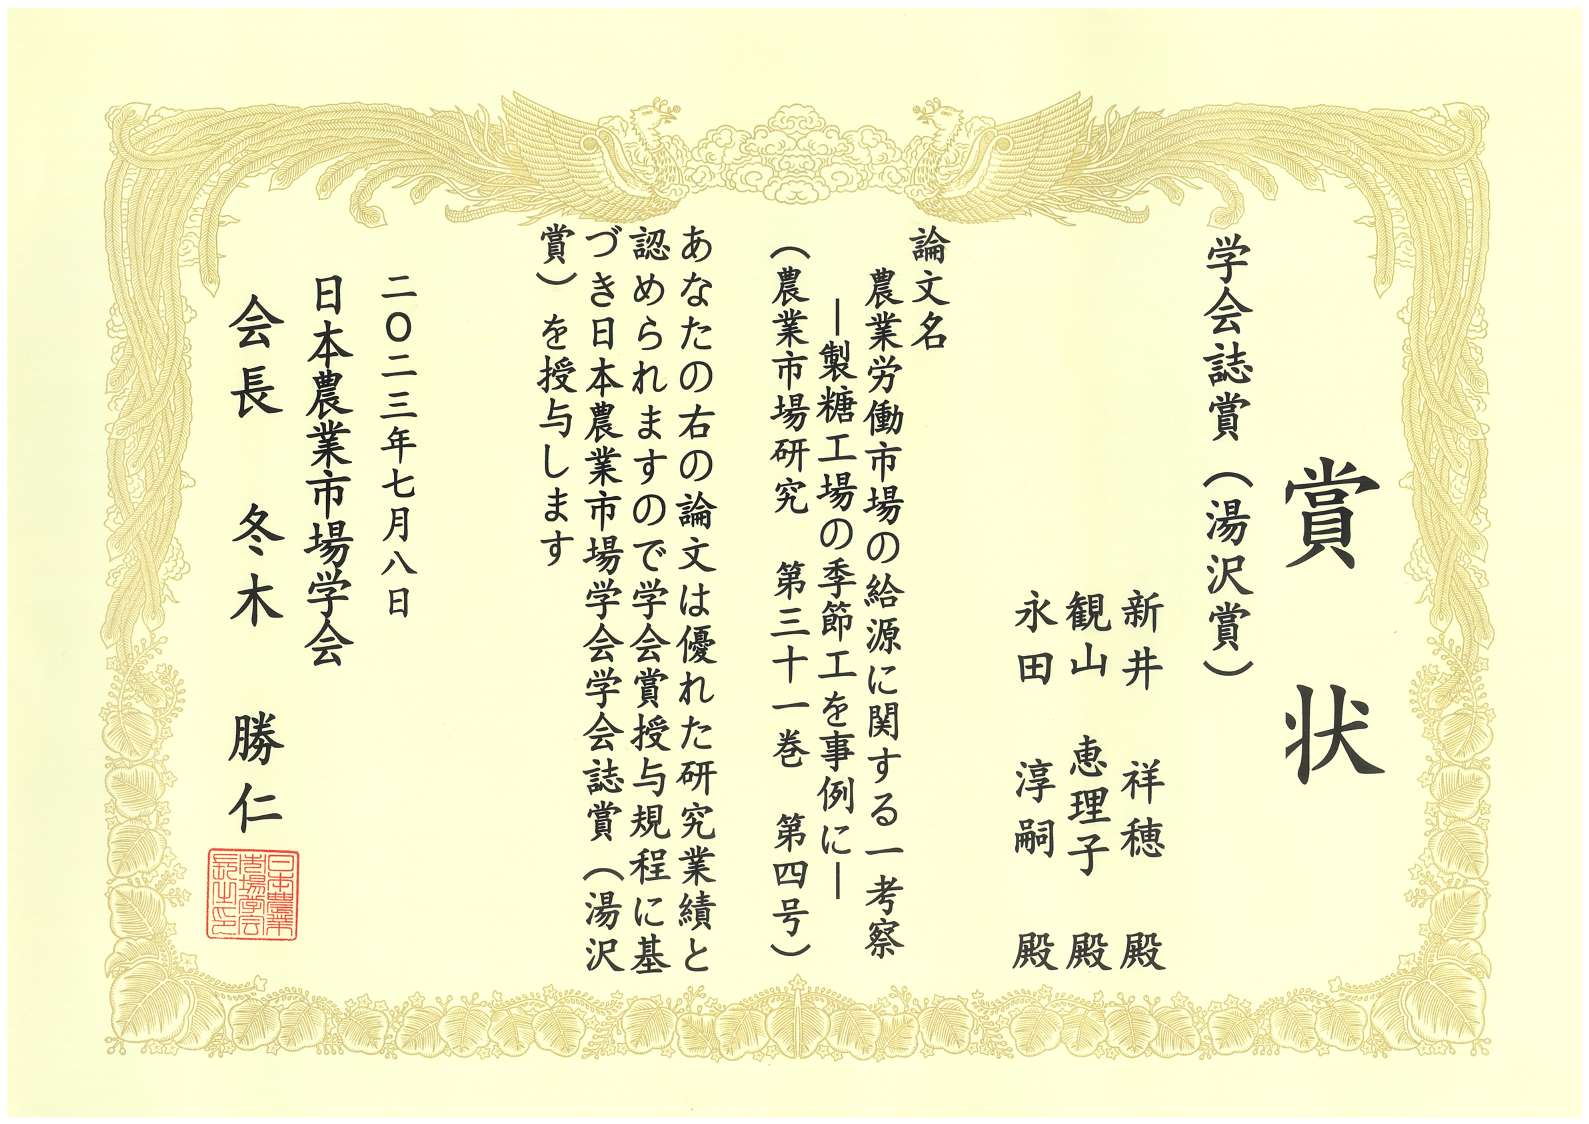 賞状
学会誌賞（湯沢賞）
新井　祥穂　殿
観山　恵理子　殿
永田　淳嗣　殿
論文名
農業労働市場の給源に関する一考察
―製糖工場の季節工を事例に―
（農業市場研究　第三十一巻　第四号）
あなたの右の論文は優れた研究業績と
認められますので学会賞授与規程に基
づき日本農業市場学会学会誌賞（湯沢
賞）を授与します
二〇二三年七月八日
日本農業市場学会
会長　冬木　勝仁
日本農業
市場学会
長之印